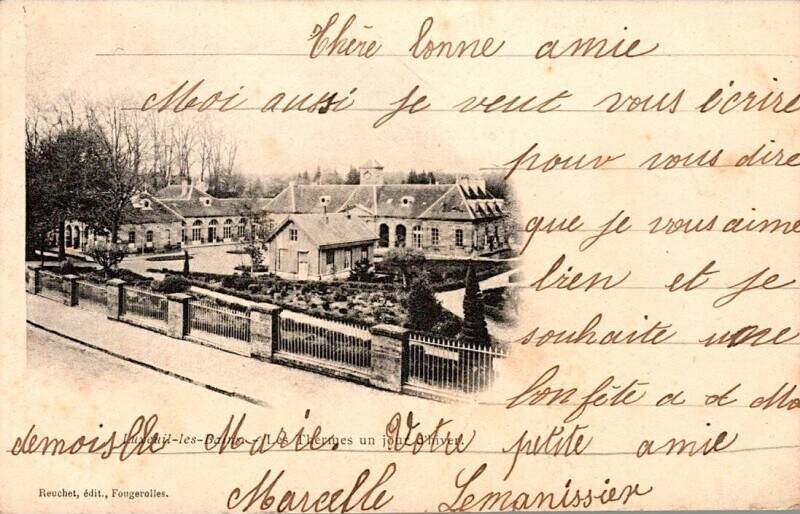 Chère bonne amie
Moi aussi je veut vous écrire
pour vous dire
que je vous aime
bien et je
souhaite une
bon fête a d Ma
demoislle Marie. Votre petite amie
Luxeuil-les-Bains - Les Thermes un jour d'hiver.
Marcelle Lemanissier
Reuchet, édit., Fougerolles.